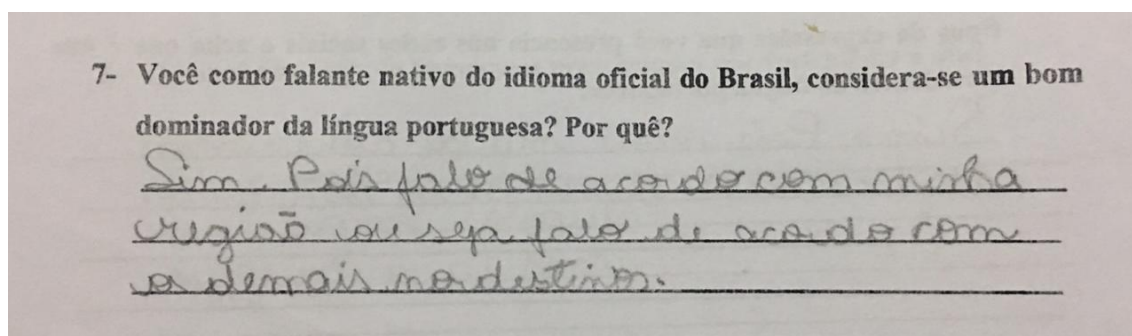 7- Você como falante nativo do idioma oficial do Brasil, considera-se um bom
dominador da língua portuguesa? Por quê?
Sim. Pois falo de acordo com minha
região ou seja falo de acordo com
os demais nordestinos.